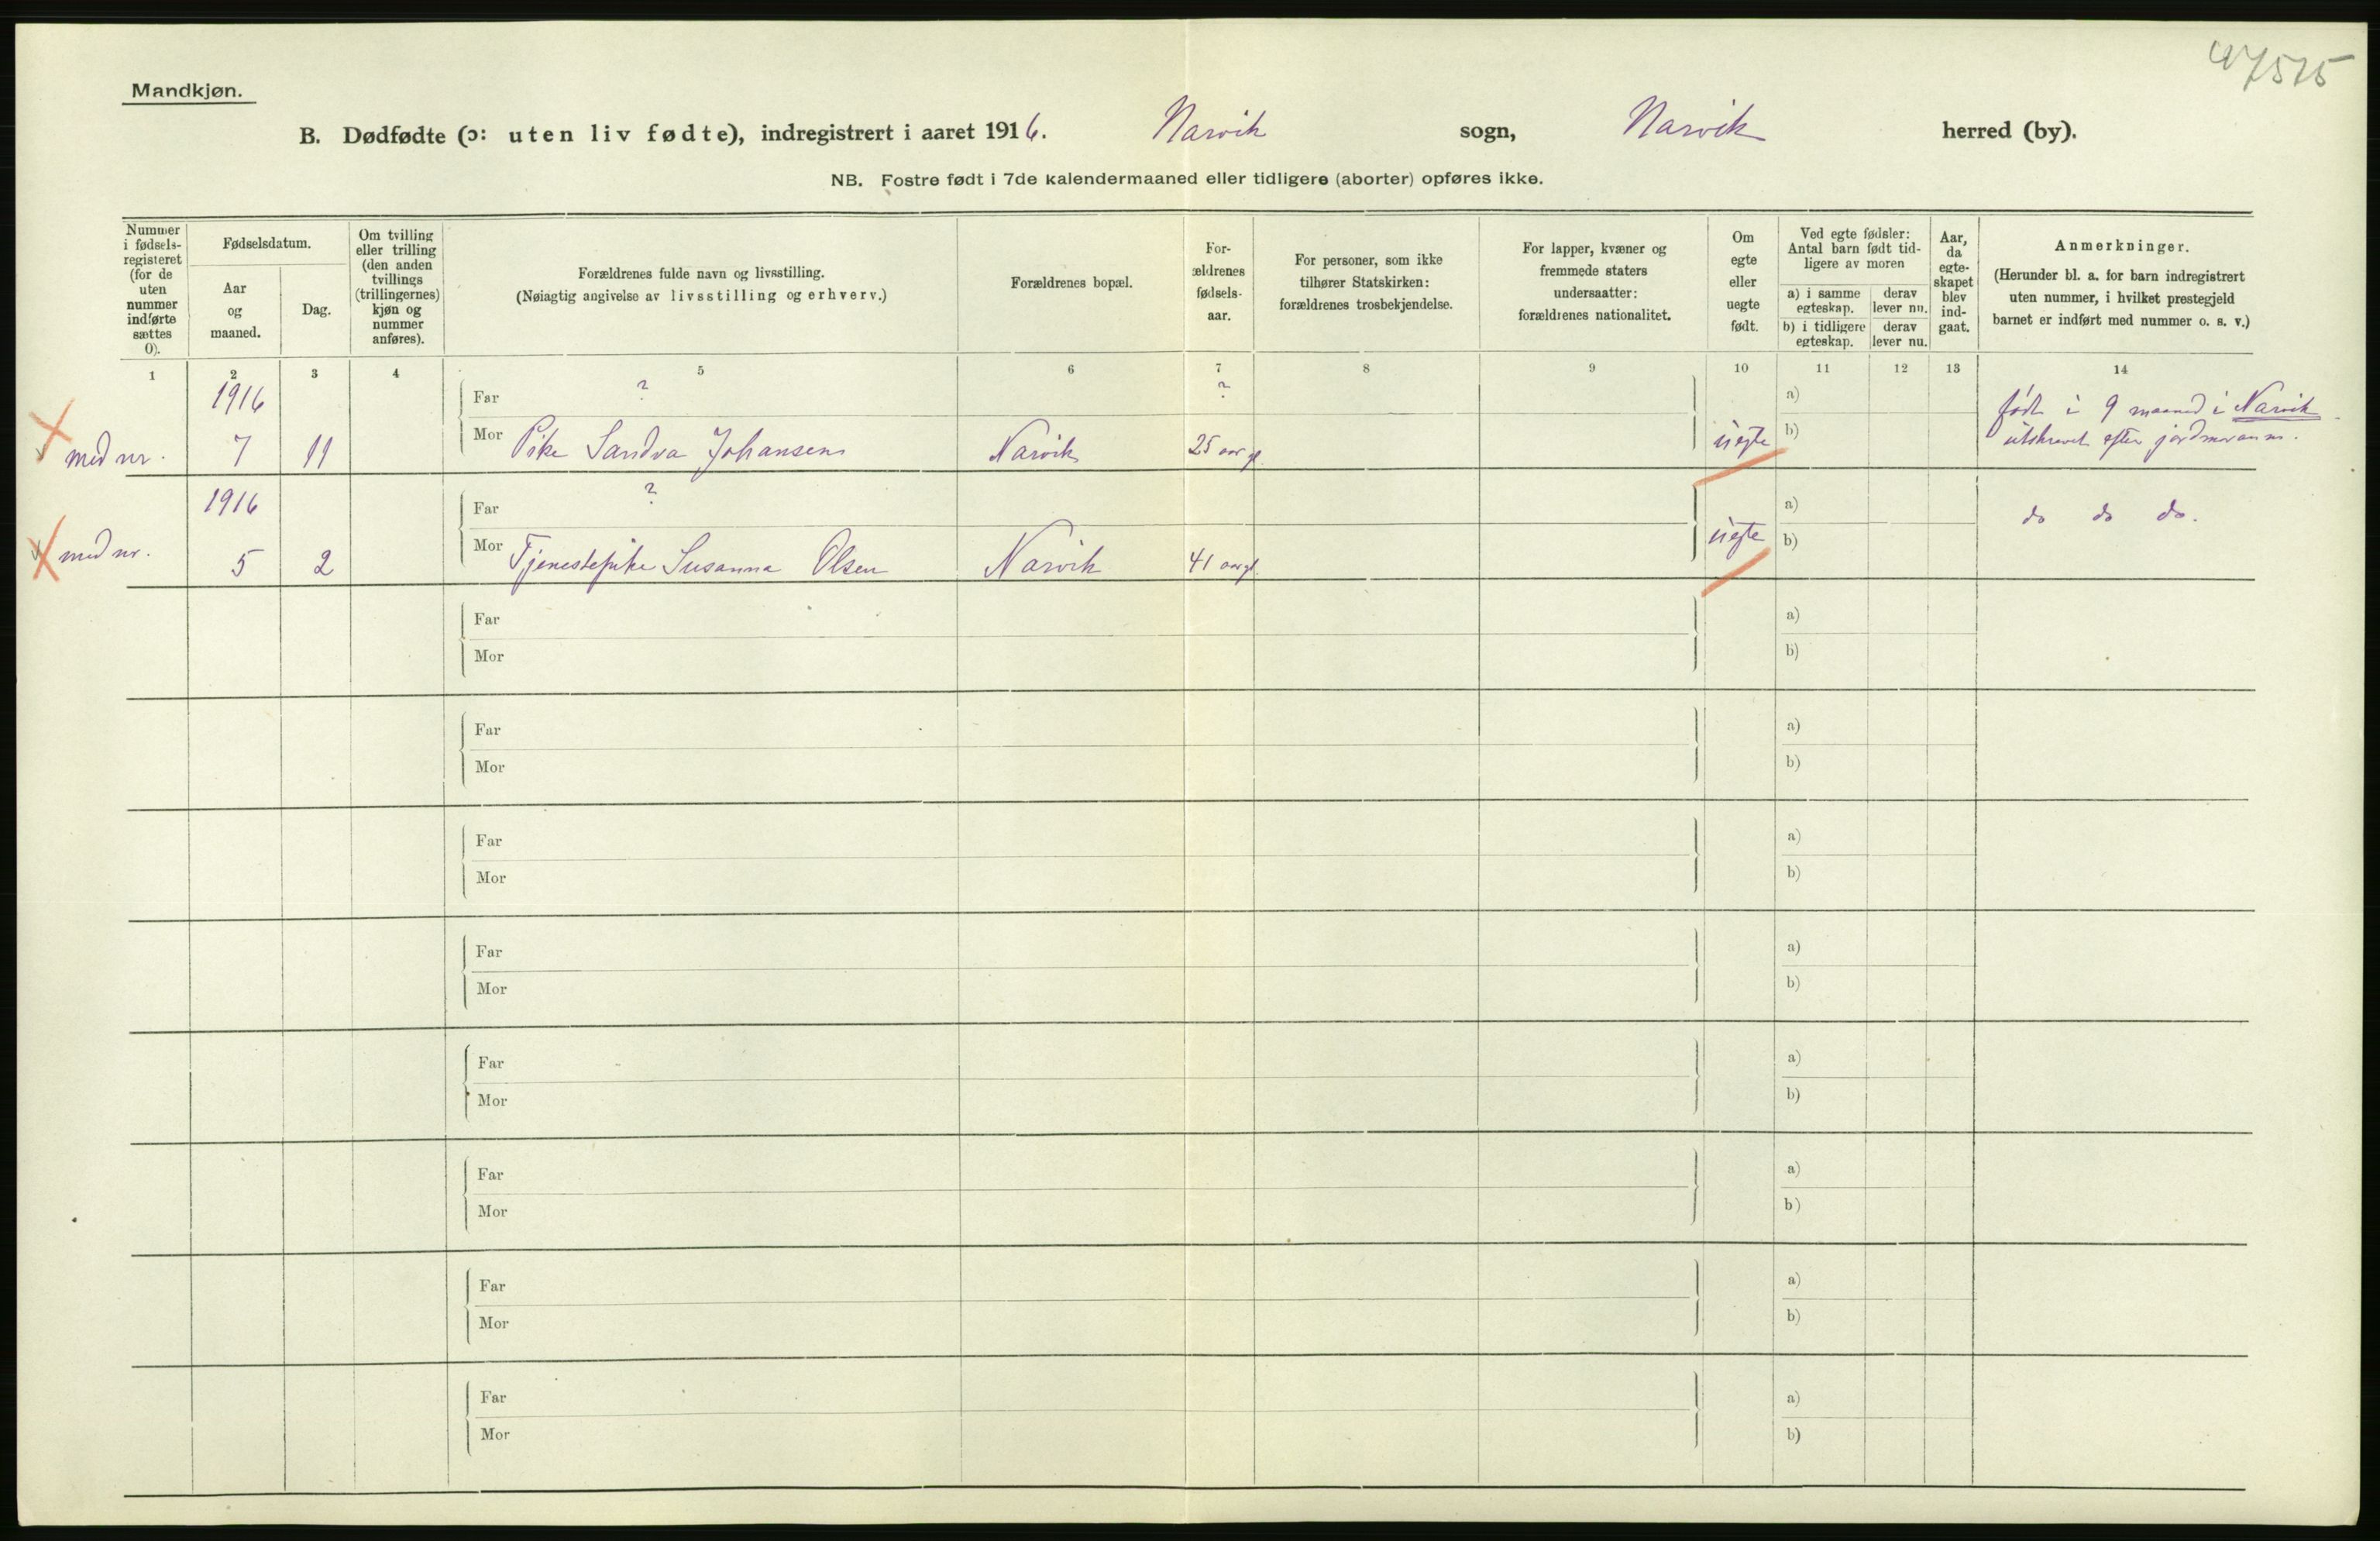 47515
Mandkjøn.
B. Dødfødte (ɔ: uten liv fødte), indregistrert i aaret 1916. Narvik sogn, Narvik herred (by).
NB. Fostre født i 7de kalendermaaned eller tidligere (aborter) opføres ikke.
Nummer i fødsels-registeret (for de uten nummer indførte sættes 0).
Fødselsdatum.
Aar og maaned.
Dag.
Om tvilling eller trilling (den anden tvillings (trillingernes) kjøn og nummer anføres).
Forældrenes fulde navn og livsstilling.
(Nøiagtig angivelse av livsstilling og erhverv.)
Forældrenes bopæl.
For-ældrenes fødsels-aar.
For personer, som ikke tilhører Statskirken: forældrenes trosbekjendelse.
For lapper, kvæner og fremmede staters undersaatter: forældrenes nationalitet.
Om egte eller uegte født.
Ved egte fødsler: Antal barn født tid-ligere av moren
a) i samme egteskap.
derav lever nu.
b) i tidligere egteskap.
derav lever nu.
Aar, da egte-skapet blev ind-gaat.
Anmerkninger.
(Herunder bl. a. for barn indregistrert uten nummer, i hvilket prestegjeld barnet er indført med nummer o. s. v.)
1 2 3 4 5 6 7 8 9 10 11 12 13 14
1916 Far ? ? a) født i 9 maaned i Narvik
med nr. 7 11 Mor Pike Sandva Johansen Narvik 25 aar gl. uegte b) utskrevet efter jordmoranm.
1916 Far ? a) do do do.
med nr. 5 2 Mor Tjenestepike Susanna Olsen Narvik 41 aar gl. uegte b)
Far a)
Mor b)
Far a)
Mor b)
Far a)
Mor b)
Far a)
Mor b)
Far a)
Mor b)
Far a)
Mor b)
Far a)
Mor b)
Far a)
Mor b)